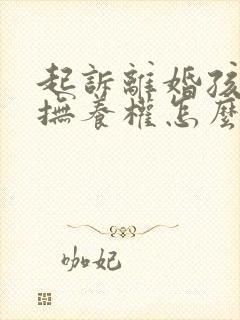 起訴離婚孩
撫養權怎麼
咖妃